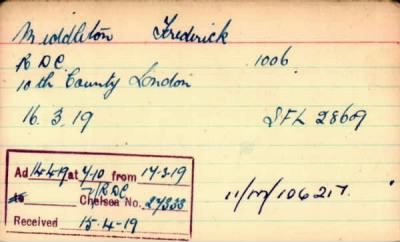 Middleton Frederick
R D C. 1006
10th County London
16.3.19 SFL 28609
Ad 14.4.19 at 7/10 from 17.3.19
7/RDC
to Chelsea No. 27333
Received 15-4-19
11/M/106217.